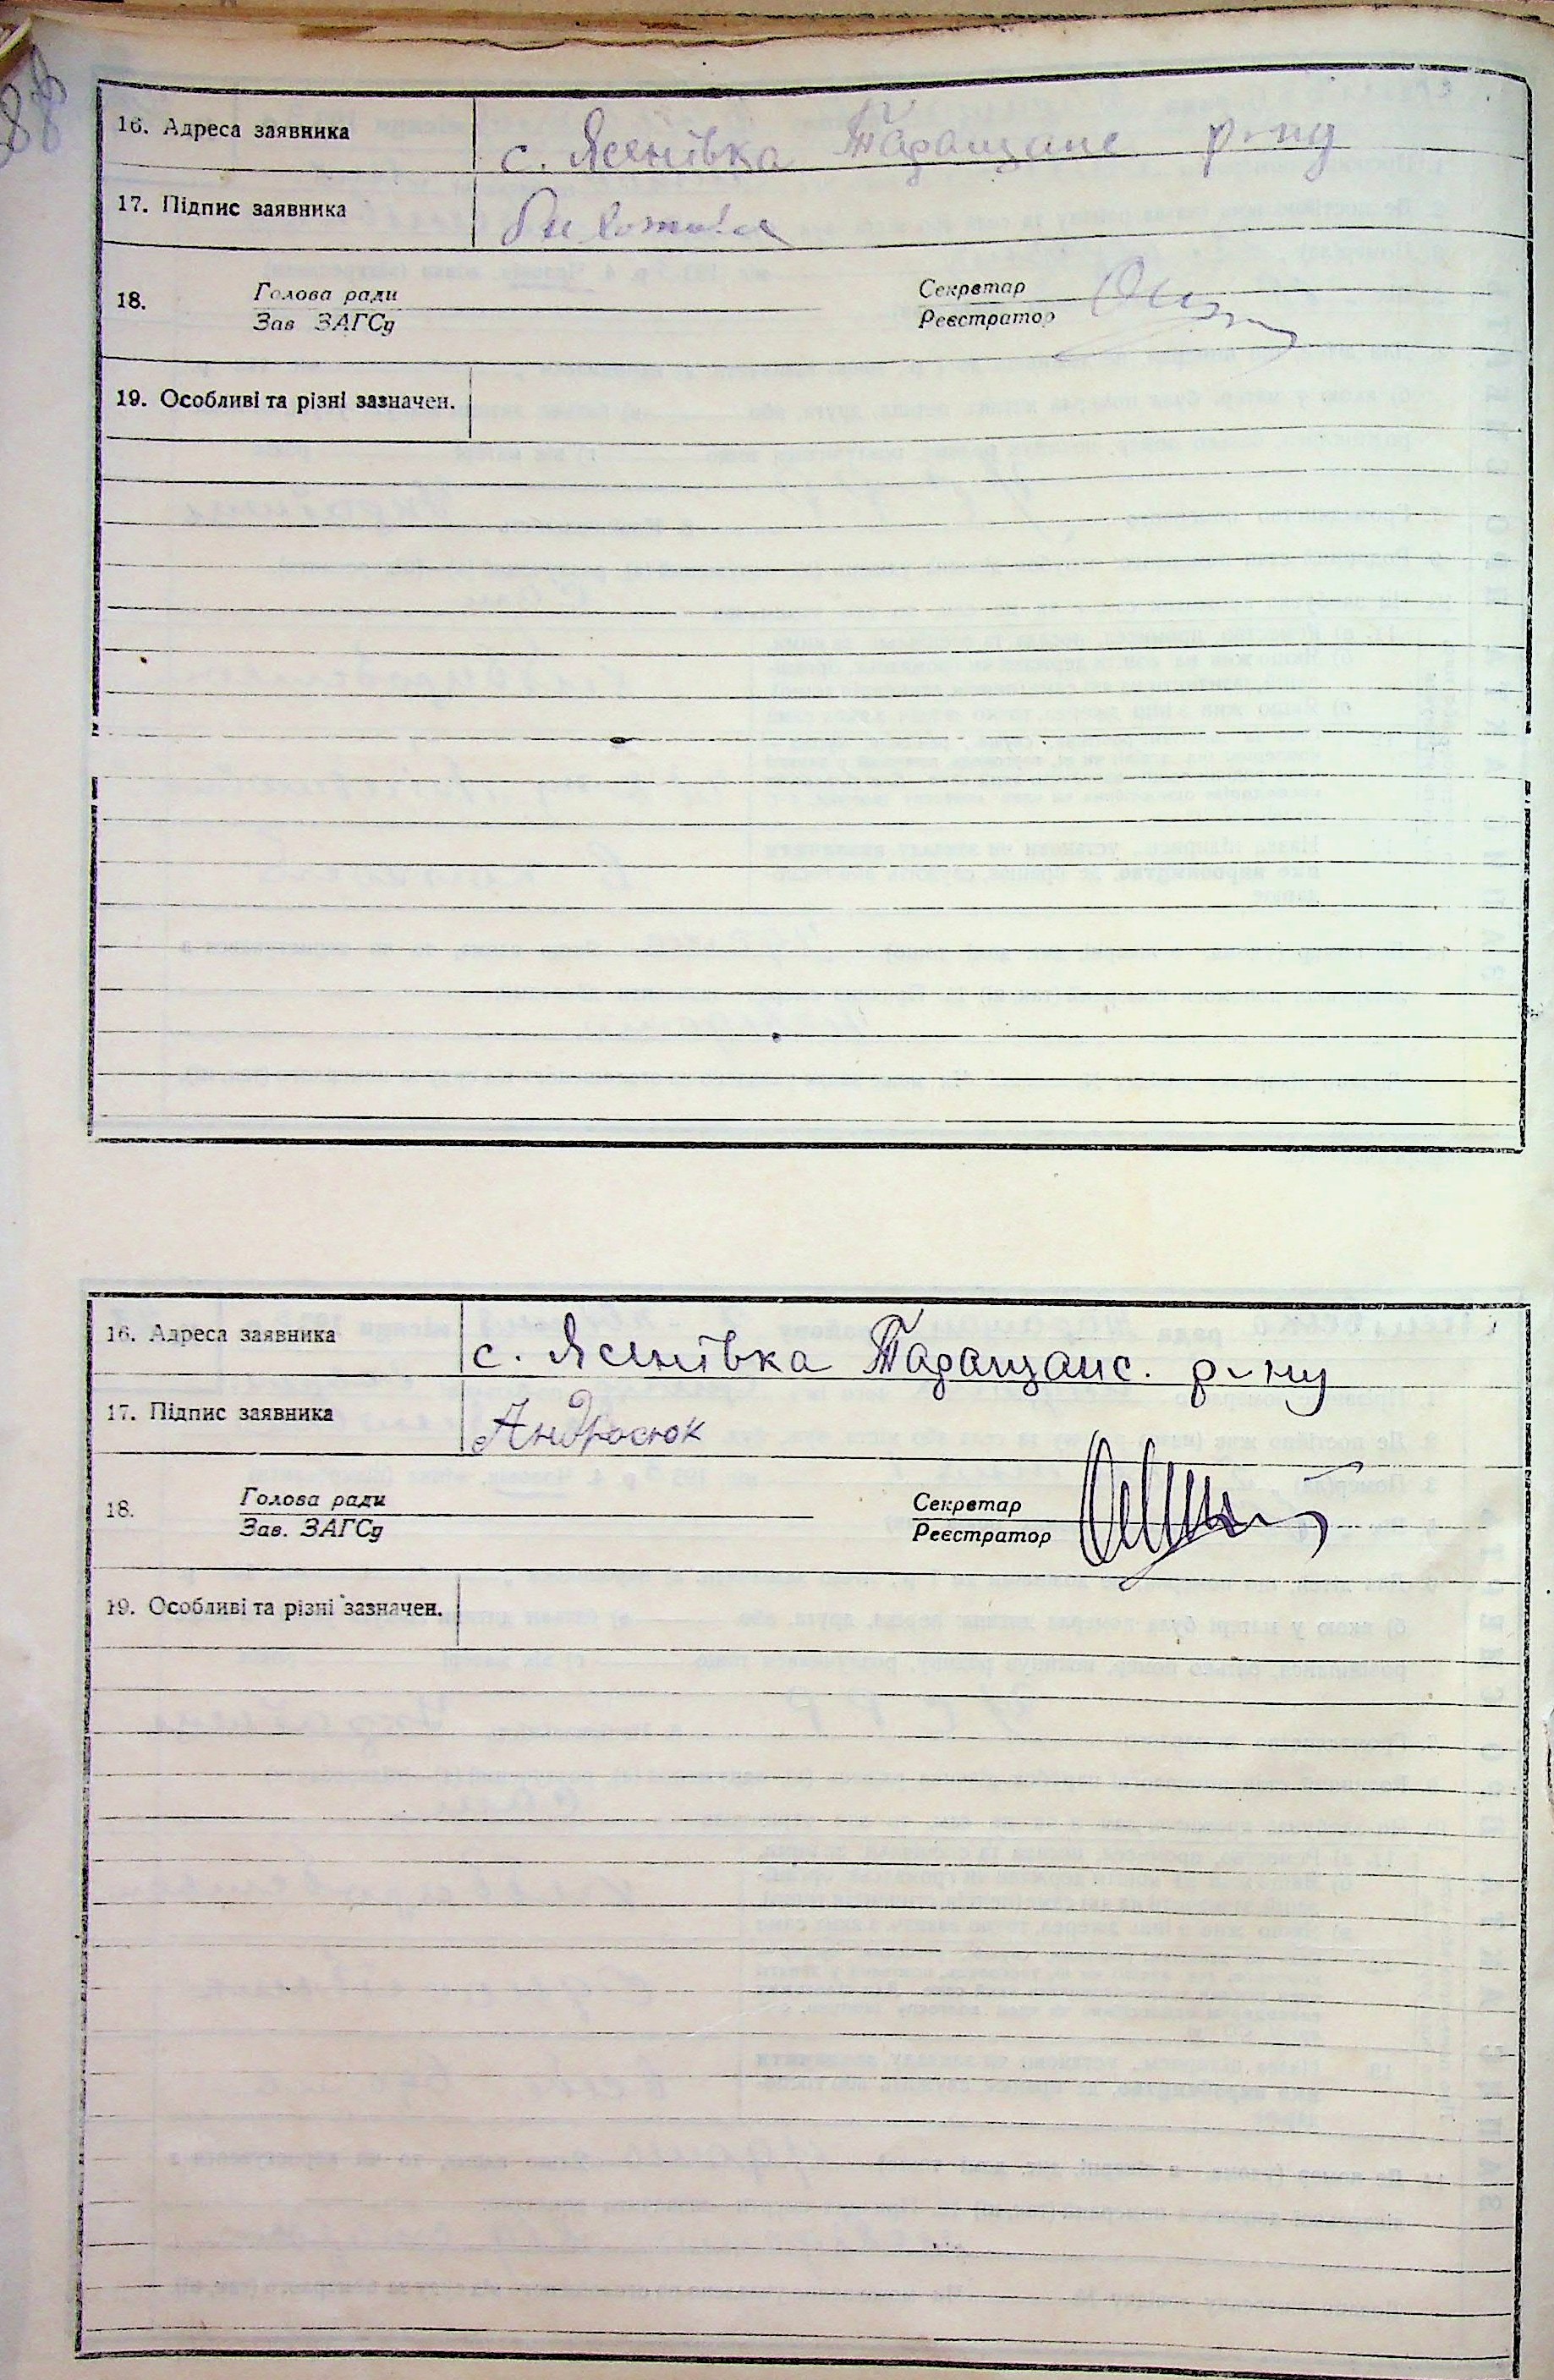 88
16. Адреса заявника с. Ясенівка Таращанс р-ну
17. Підпис заявника
18. Голова ради Секретар
Зав ЗАГСу Реєстратор
19. Особливі та різні зазначен.
16. Адреса заявника с. Ясенівка Таращанс. р-ну
17. Підпис заявника Андросюк
18. Голова ради Секретар
Зав. ЗАГСу Реєстратор
19. Особливі та різні зазначен.